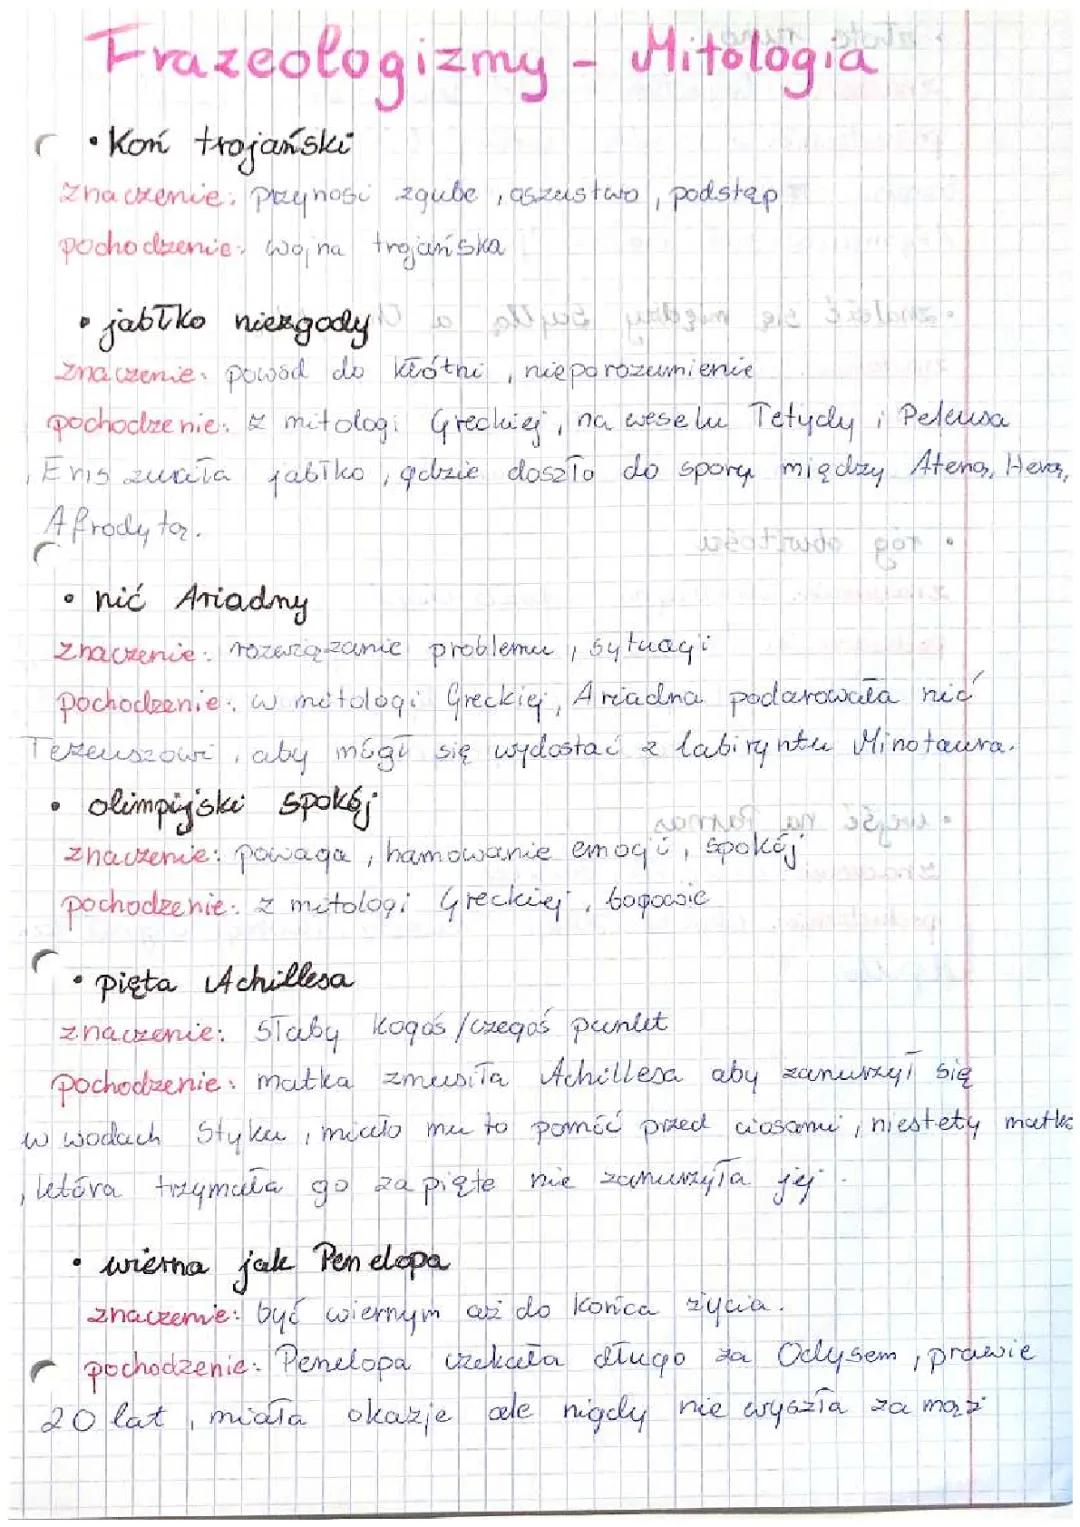 Frazeologizmy - Mitologia
• Koń trojański
znaczenie: przynosi zgube, oszustwo, podstęp
pochodzenie: wojna trojańska
• jabłko niezgody
znaczenie: powód do kłótni, nieporozumienie
pochodzenie: z mitologi Greckiej, na weselu Tetydy i Peleusa
, Eris rzuciła jabłko, gdzie doszło do sporu między Ateną, Herą,
Afrodytą.
• nić Ariadny
znaczenie: rozwiązanie problemu, sytuacji
pochodzenie: w mitologi Greckiej, Ariadna podarowała nić
Tezeuszowi, aby mógł się wydostać z labiryntu Minotaura.
• olimpijski spokój
znaczenie: powaga, hamowanie emocji, spokój
pochodzenie: z mitologi Greckiej, bogowie
• pięta Achillesa
znaczenie: słaby kogoś/czegoś punkt
pochodzenie: matka zmusiła Achillesa aby zanurzył się
w wodach Styku, miało mu to pomóć przed ciosami, niestety matka
, która trzymała go za pięte nie zanurzyła jej.
• wierna jak Penelopa
znaczenie: być wiernym aż do końca życia.
pochodzenie: Penelopa czekała długo za Odysem, prawie
20 lat, miała okazje ale nigdy nie wyszła za mąż